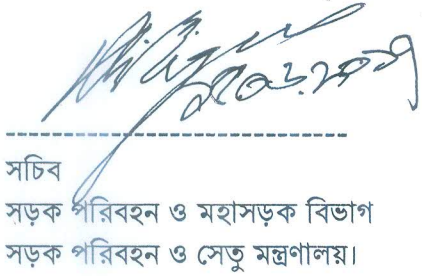 সচিব
সড়ক পরিবহন ও মহাসড়ক বিভাগ
সড়ক পরিবহন ও সেতু মন্ত্রণালয়।